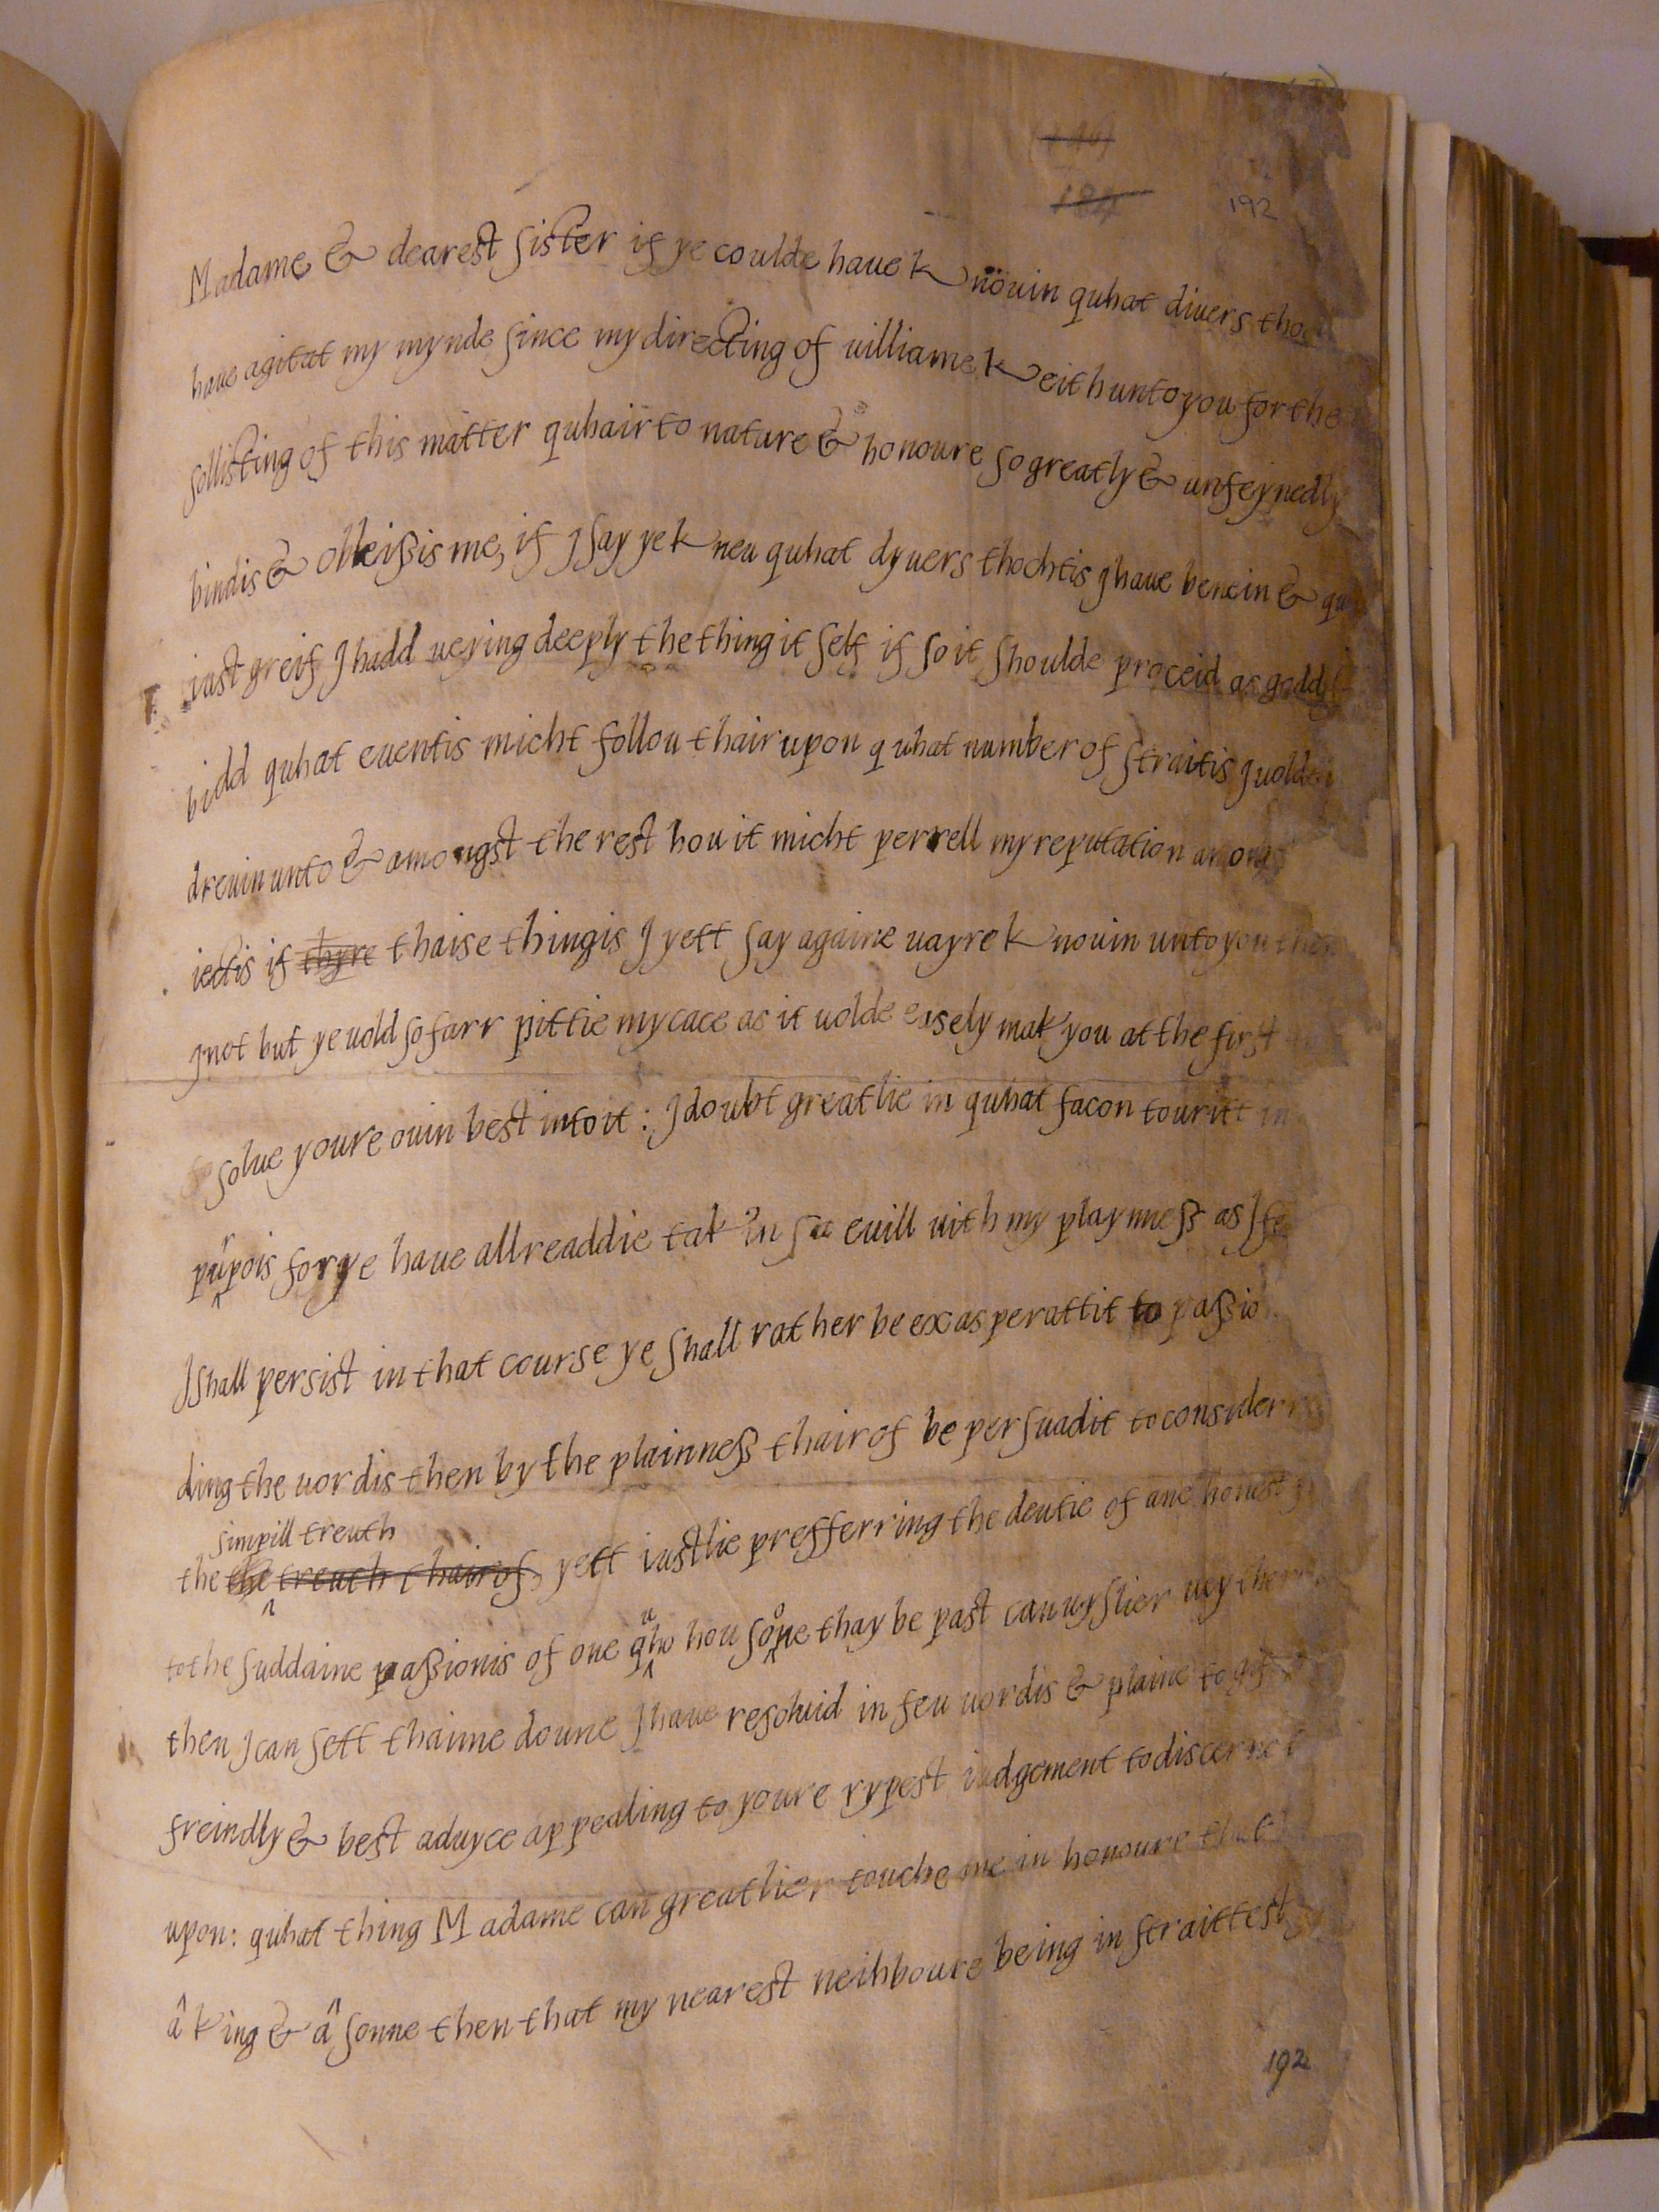 192
Madame & dearest sister if ye coulde haue knouin quhat diuers
haue agitat my mynde since my directing of uilliame keith unto you for the
sollisting of this matter quhairto nature & honoure so greatly & unfeynedly
bindis & obleißis me, if J say ye kneu quhat dyuers thochtis J haue bene in &
iust greif J hadd ueying deeply the thing it self if so it shoulde proceid as godd
bidd quhat euentis micht follou thairupon quhat number of straitis J uolde
dreuin unto & amongst the rest hou it micht perrell my reputation
iectis if thyre thaise thingis J yett say againe uayre knouin unto you
J not but ye uold so farr pittie my cace as it uolde easely mak you at the first
solue youre ouin best into it: J doubt greatlie in quhat facon to uritt in
purpois for ye haue allreaddie tak'in sa euill uith my playnness as J
J shall persist in that course ye shall rather be exasperattit to
ding the uordis then by the plainneß thairof be persuadit to consider
simpill treuth
the the treuth thairof, yett iustlie prefferring the deutie of ane honest
to the suddaine paßionis of one quho hou soone thay be past can uyslier
then J can sett thaime doune J haue resoluid in feu uordis & plaine to
freindly & best aduyce appealing to youre rypest iudgement to discerne
upon: quhat thing Madame can greatlier touche me in honoure that
â king & â sonne then that my nearest neihboure being in straittest
192